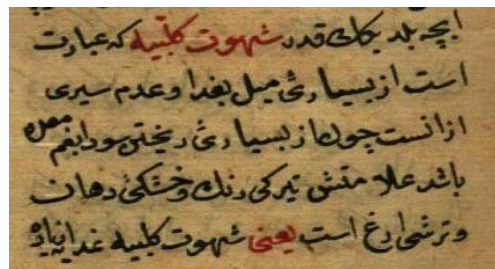 شهوت کلبیه که عبارت
است از بسیارئ میل بغدا و عدم سیری
ازانست چون از بسیارئ ریختن سودا بفم معده
باشد علامتش تیرکی رنك و خشکئ دهان
و ترشی ارغ است یعنی شهوت کلبیه